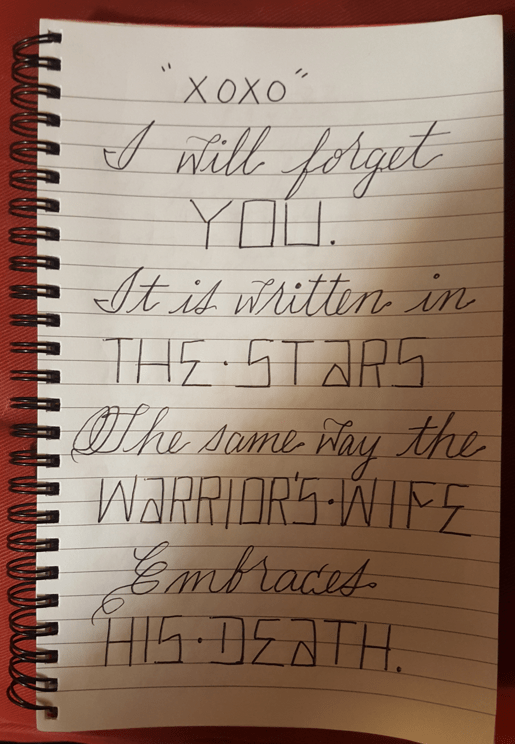 "XOXO"
I will forget
YOU.
It is written in
THE·STARS
The same way the
WARRIOR'S·WIFE
Embraces
HIS·DEATH.